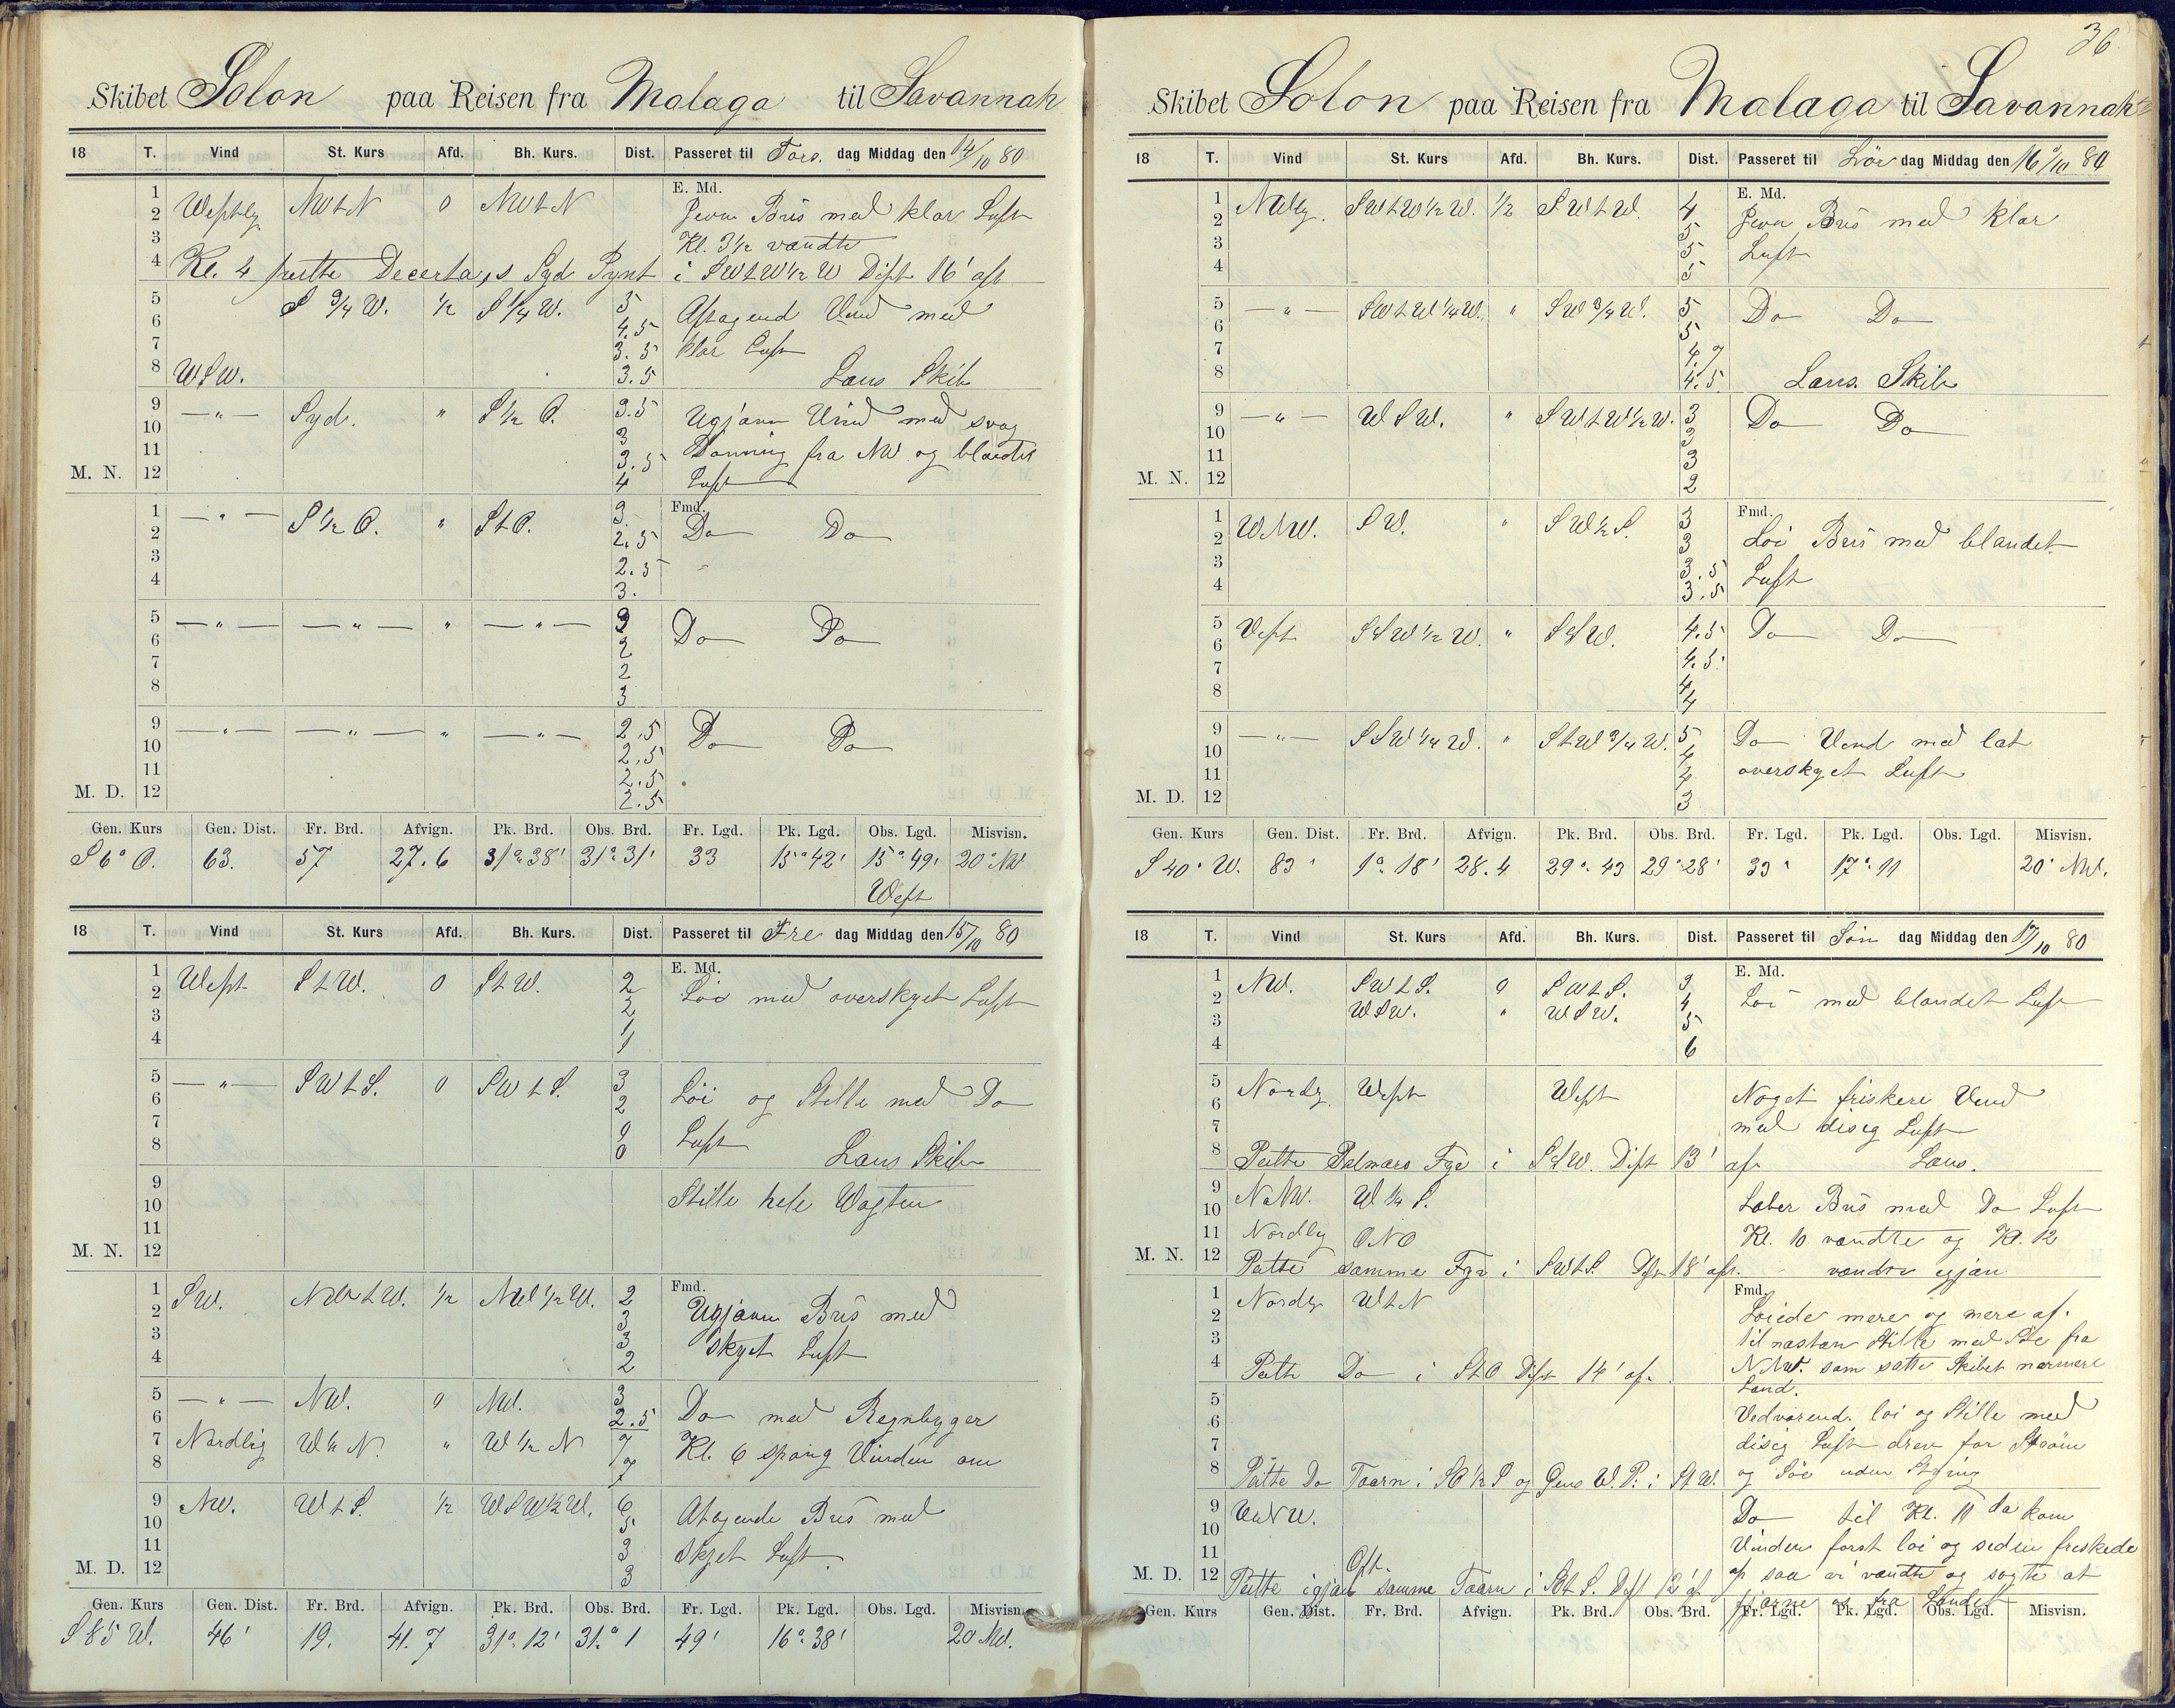 Skibet Solon paa Reisen fra Malaga til Savannah
18 T. Vind St. Kurs Afd. Bh. Kurs. Dist. Passeret til Tors. dag Middag den 14/10 80
E. Md.
1 2 3 4 Westlig NWtN 0 NWtN Jevn Bris med klar Luft
Kl. 3½ vandte
Kl. 4 peilte Decerta,s Syd Pynt i SWtW½W Dist 16' afst
5 6 7 8 S ¾ W. ½ S ¼ W. 5 Aftagend Vind med
4.5
3.5 klar Luft
WSW. 3.5 Læns Skib
9 10 11 12 —"— Syd. " S ½ O. 3.5 Ugjævn Vind med svag
3
3.5 Dønning fra NW og blandet
M. N. 4 Luft
Fmd.
1 2 3 4 —"— S ½ O. " StO. 3. Do Do
2.5
2.5
3.
5 6 7 8 —"— —"— " —"— 3 Do Do
2
2
3
9 10 11 12 —"— —"— " —"— 2.5 Do Do
2.5
2.5
M. D. 2.5
Gen. Kurs Gen. Dist. Fr. Brd. Afvign. Pk. Brd. Obs. Brd. Fr. Lgd. Pk. Lgd. Obs. Lgd. Misvisn.
S 6° O. 63. 57 27.6 31°38' 31°31' 33 15°42' 15°49' 20° NW
West
18 T. Vind St. Kurs Afd. Bh. Kurs. Dist. Passeret til Fre dag Middag den 15/10 80
E. Md.
1 2 3 4 West StW. 0 StW. 2 Löi med overskyet Luft
2
1
1
5 6 7 8 —"— SWtS. 0 SWtS. 3 Löi og Stille med Do
2
0 Luft
0 Læns Skib
9 10 11 12 Stille hele Vagten
M. N.
Fmd.
1 2 3 4 SW. NWtW. ½ NW ½ W. 2 Ugjævn Bris med
3
3 skyet Luft
2
5 6 7 8 —"— NW. 0 NW. 3 Do med Regnbyger
2.5
Nordlig W¼N. " W ½ N 7 Kl. 6 sprang Vinden om
7
9 10 11 12 NW. WtS. ½ WSW½W. 6 Aftagende Bris med
5
3 Skyet Luft.
M. D. 3
Gen. Kurs Gen. Dist. Fr. Brd. Afvign. Pk. Brd. Obs. Brd. Fr. Lgd. Pk. Lgd. Obs. Lgd. Misvisn.
S 85 W. 46' 19. 41.7 31°12' 31°1 49' 16°38' 20 NW.
36
Skibet Solon paa Reisen fra Malaga til Savannah
18 T. Vind St. Kurs Afd. Bh. Kurs. Dist. Passeret til Lör dag Middag den 16/10 80
E. Md.
1 2 3 4 NWlig. SWtW½W. ½ SWtW. 4 Jevn Bris med klar
5
5 Luft
5
5 6 7 8 —"— SWtW¼W. " SW¾W. 5 Do Do
5
4.7
4.5 Læns. Skib
9 10 11 12 —"— WSW. " SWtW½W. 3 Do Do
3
3
M. N. 2
Fmd.
1 2 3 4 WNW. SW. " SW½S. 3 Löi Bris med blandet
3
3.5 Luft
3.5
5 6 7 8 Vest SSW½W. " SSW. 4.5 Do Do
4.5
4
4
9 10 11 12 —"— SSW¼W. " StW¾W. 5 Do Vind med let
4
4 overskyet Luft
M. D. 3
Gen. Kurs Gen. Dist. Fr. Brd. Afvign. Pk. Brd. Obs. Brd. Fr. Lgd. Pk. Lgd. Obs. Lgd. Misvisn.
S 40° W. 83' 1°18' 28.4 29°43 29°28' 33' 17°11 20° NW.
18 T. Vind St. Kurs Afd. Bh. Kurs. Dist. Passeret til Sön dag Middag den 17/10 80
E. Md.
1 2 3 4 NW. SWtS. 0 SWtS. 3 Löi med blandet Luft
WSW. " WSW. 4
5
6
5 6 7 8 Nordlg. West West Noget friskere Vind
med disig Luft
Peilte Palmas Fyr i SSW. Dist 13' afs Læns.
9 10 11 12 NNW. W ¼ S. Laber Bris med Do Luft
Nordlig ONO Kl. 10 vandte og Kl. 12
M. N. Peilte samme Fyr i SWtS. Dist 18' afst. vandte igjæn
Fmd.
1 2 3 4 Nordlg WtN Löiede mere og mere af.
til næsten Stille med Söe fra
Peilte Do i StO Dist 14' afs. NNW. som satte Skibet nærmere
Land.
5 6 7 8 Vedvarend. löi og Stille med
disig Luft drev for Ström
Peilte Do Taarn i SO½S og Gens W. P. i StW. og Söe uden Styring
9 10 11 12 VNV. Do til Kl. 11 da kom
Vinden först löi og siden friskede
Oft.
M. D. Peilte igjæn samme Taarn i SOtS. Dist 12' af op saa vi vandte og sögte at
fjærne os fra Landet
Gen. Kurs Gen. Dist. Fr. Brd. Afvign. Pk. Brd. Obs. Brd. Fr. Lgd. Pk. Lgd. Obs. Lgd. Misvisn.